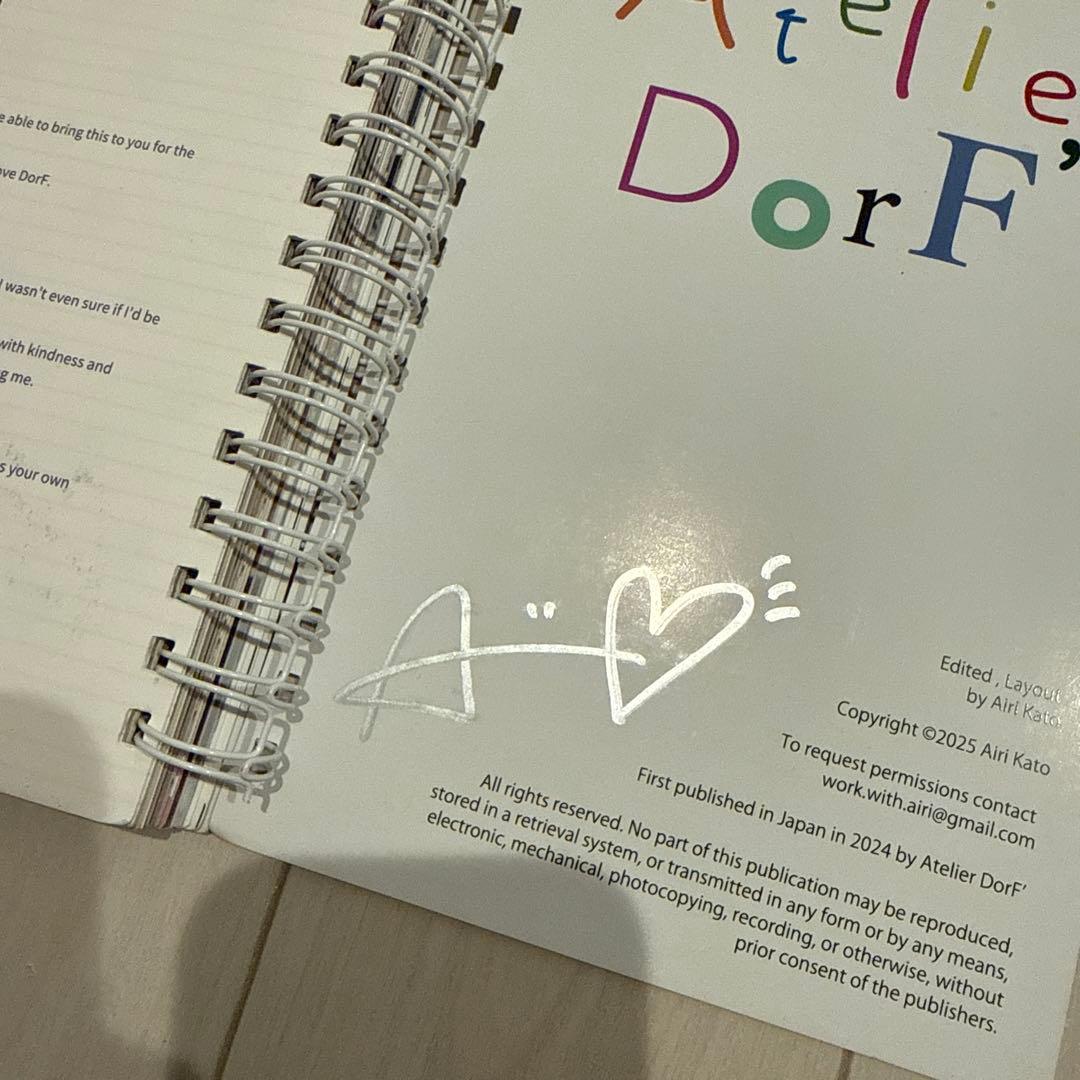 e able to bring this to you for the
ve DorF.
I wasn't even sure if I'd be
with kindness and
g me.
s your own
Atelie
DorF'
Edited , Layout
by Airi Kato
Copyright ©2025 Airi Kato
To request permissions contact
work.with.airi@gmail.com
First published in Japan in 2024 by Atelier DorF'
All rights reserved. No part of this publication may be reproduced,
stored in a retrieval system, or transmitted in any form or by any means,
electronic, mechanical, photocopying, recording, or otherwise, without
prior consent of the publishers.